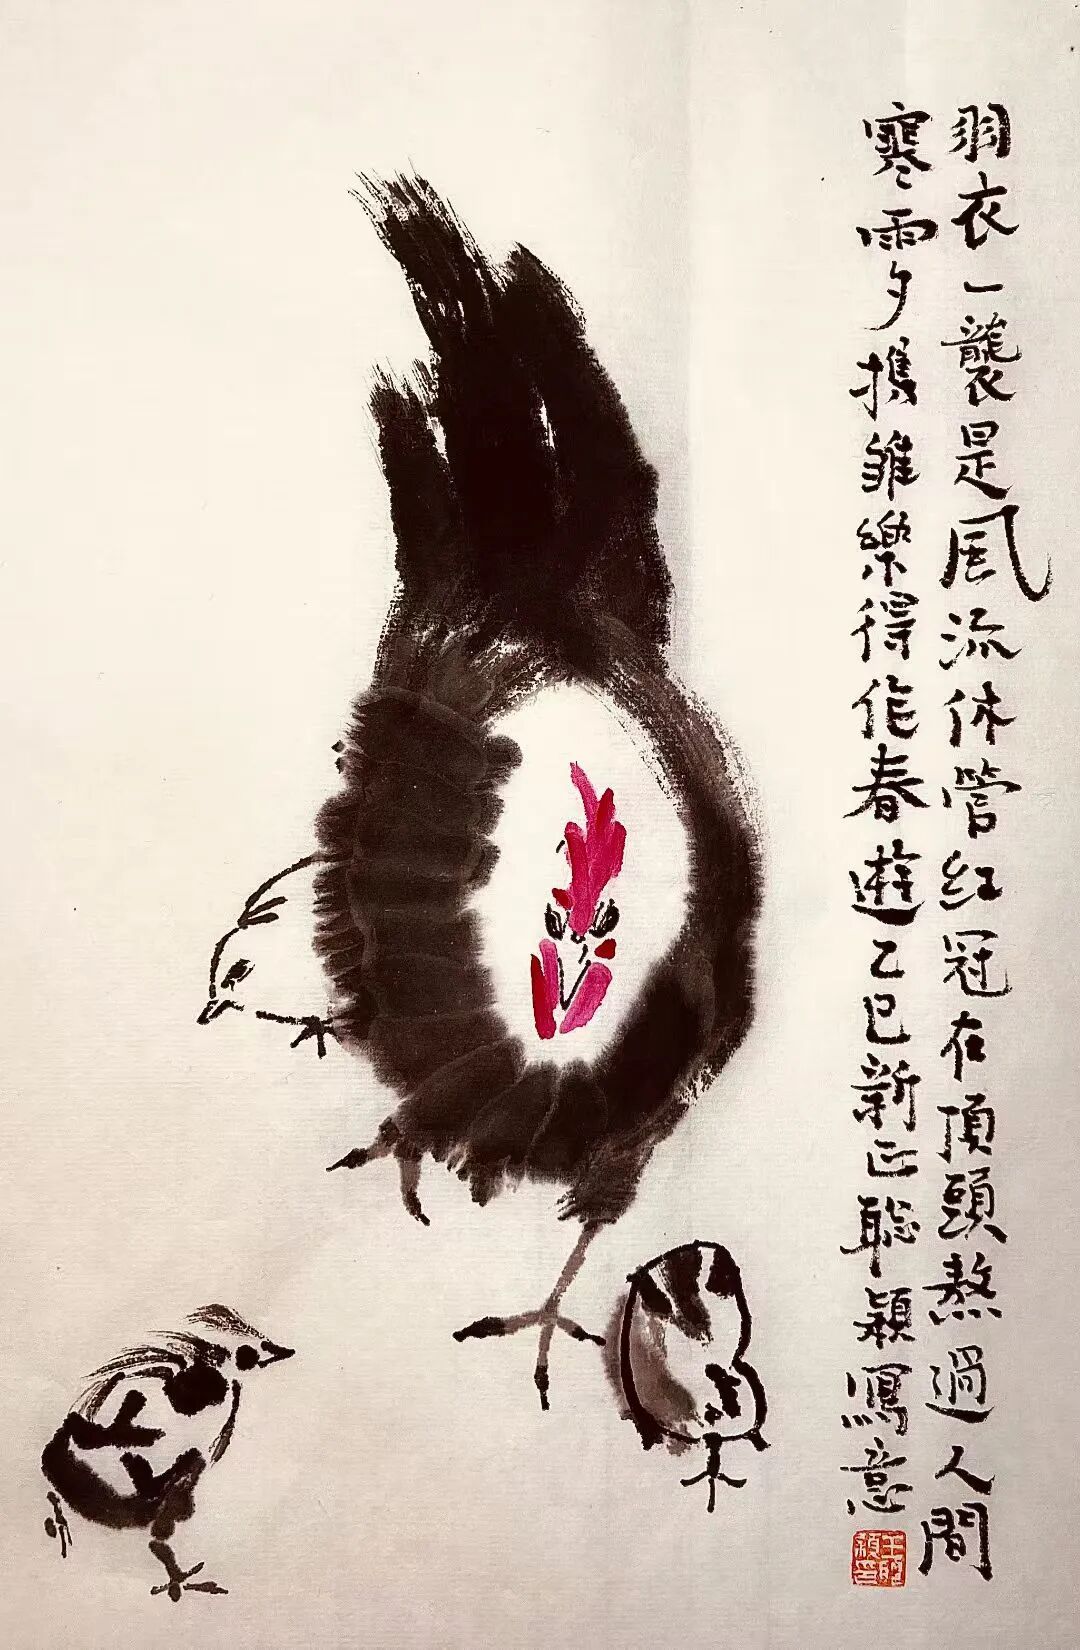 羽衣一襲是風流休管紅冠在頂頭熬過人間
寒雨夕攜雛樂得作春遊乙巳新正聰穎寫意